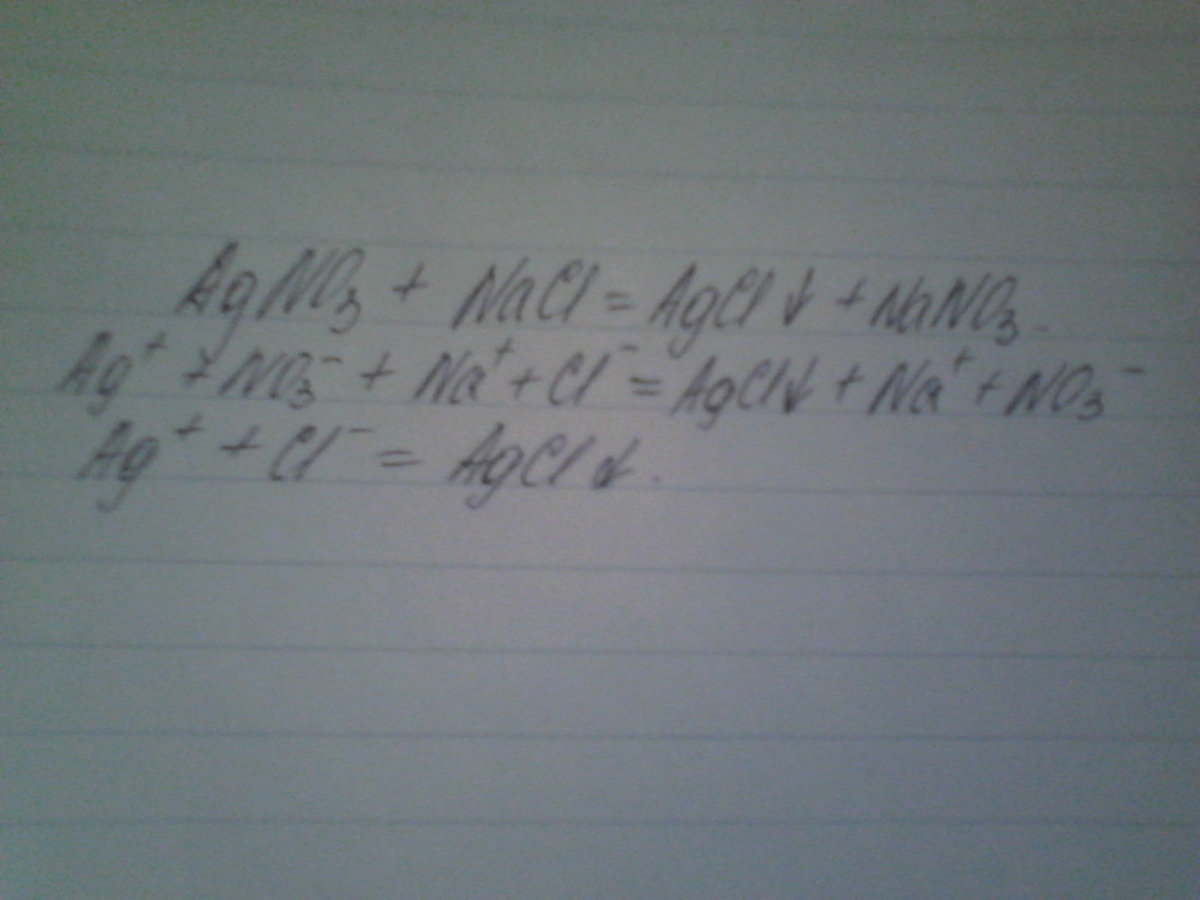 AgNO₃ + NaCl = AgCl↓ + NaNO₃.
Ag⁺ + NO₃⁻ + Na⁺ + Cl⁻ = AgCl↓ + Na⁺ + NO₃⁻
Ag⁺ + Cl⁻ = AgCl↓.